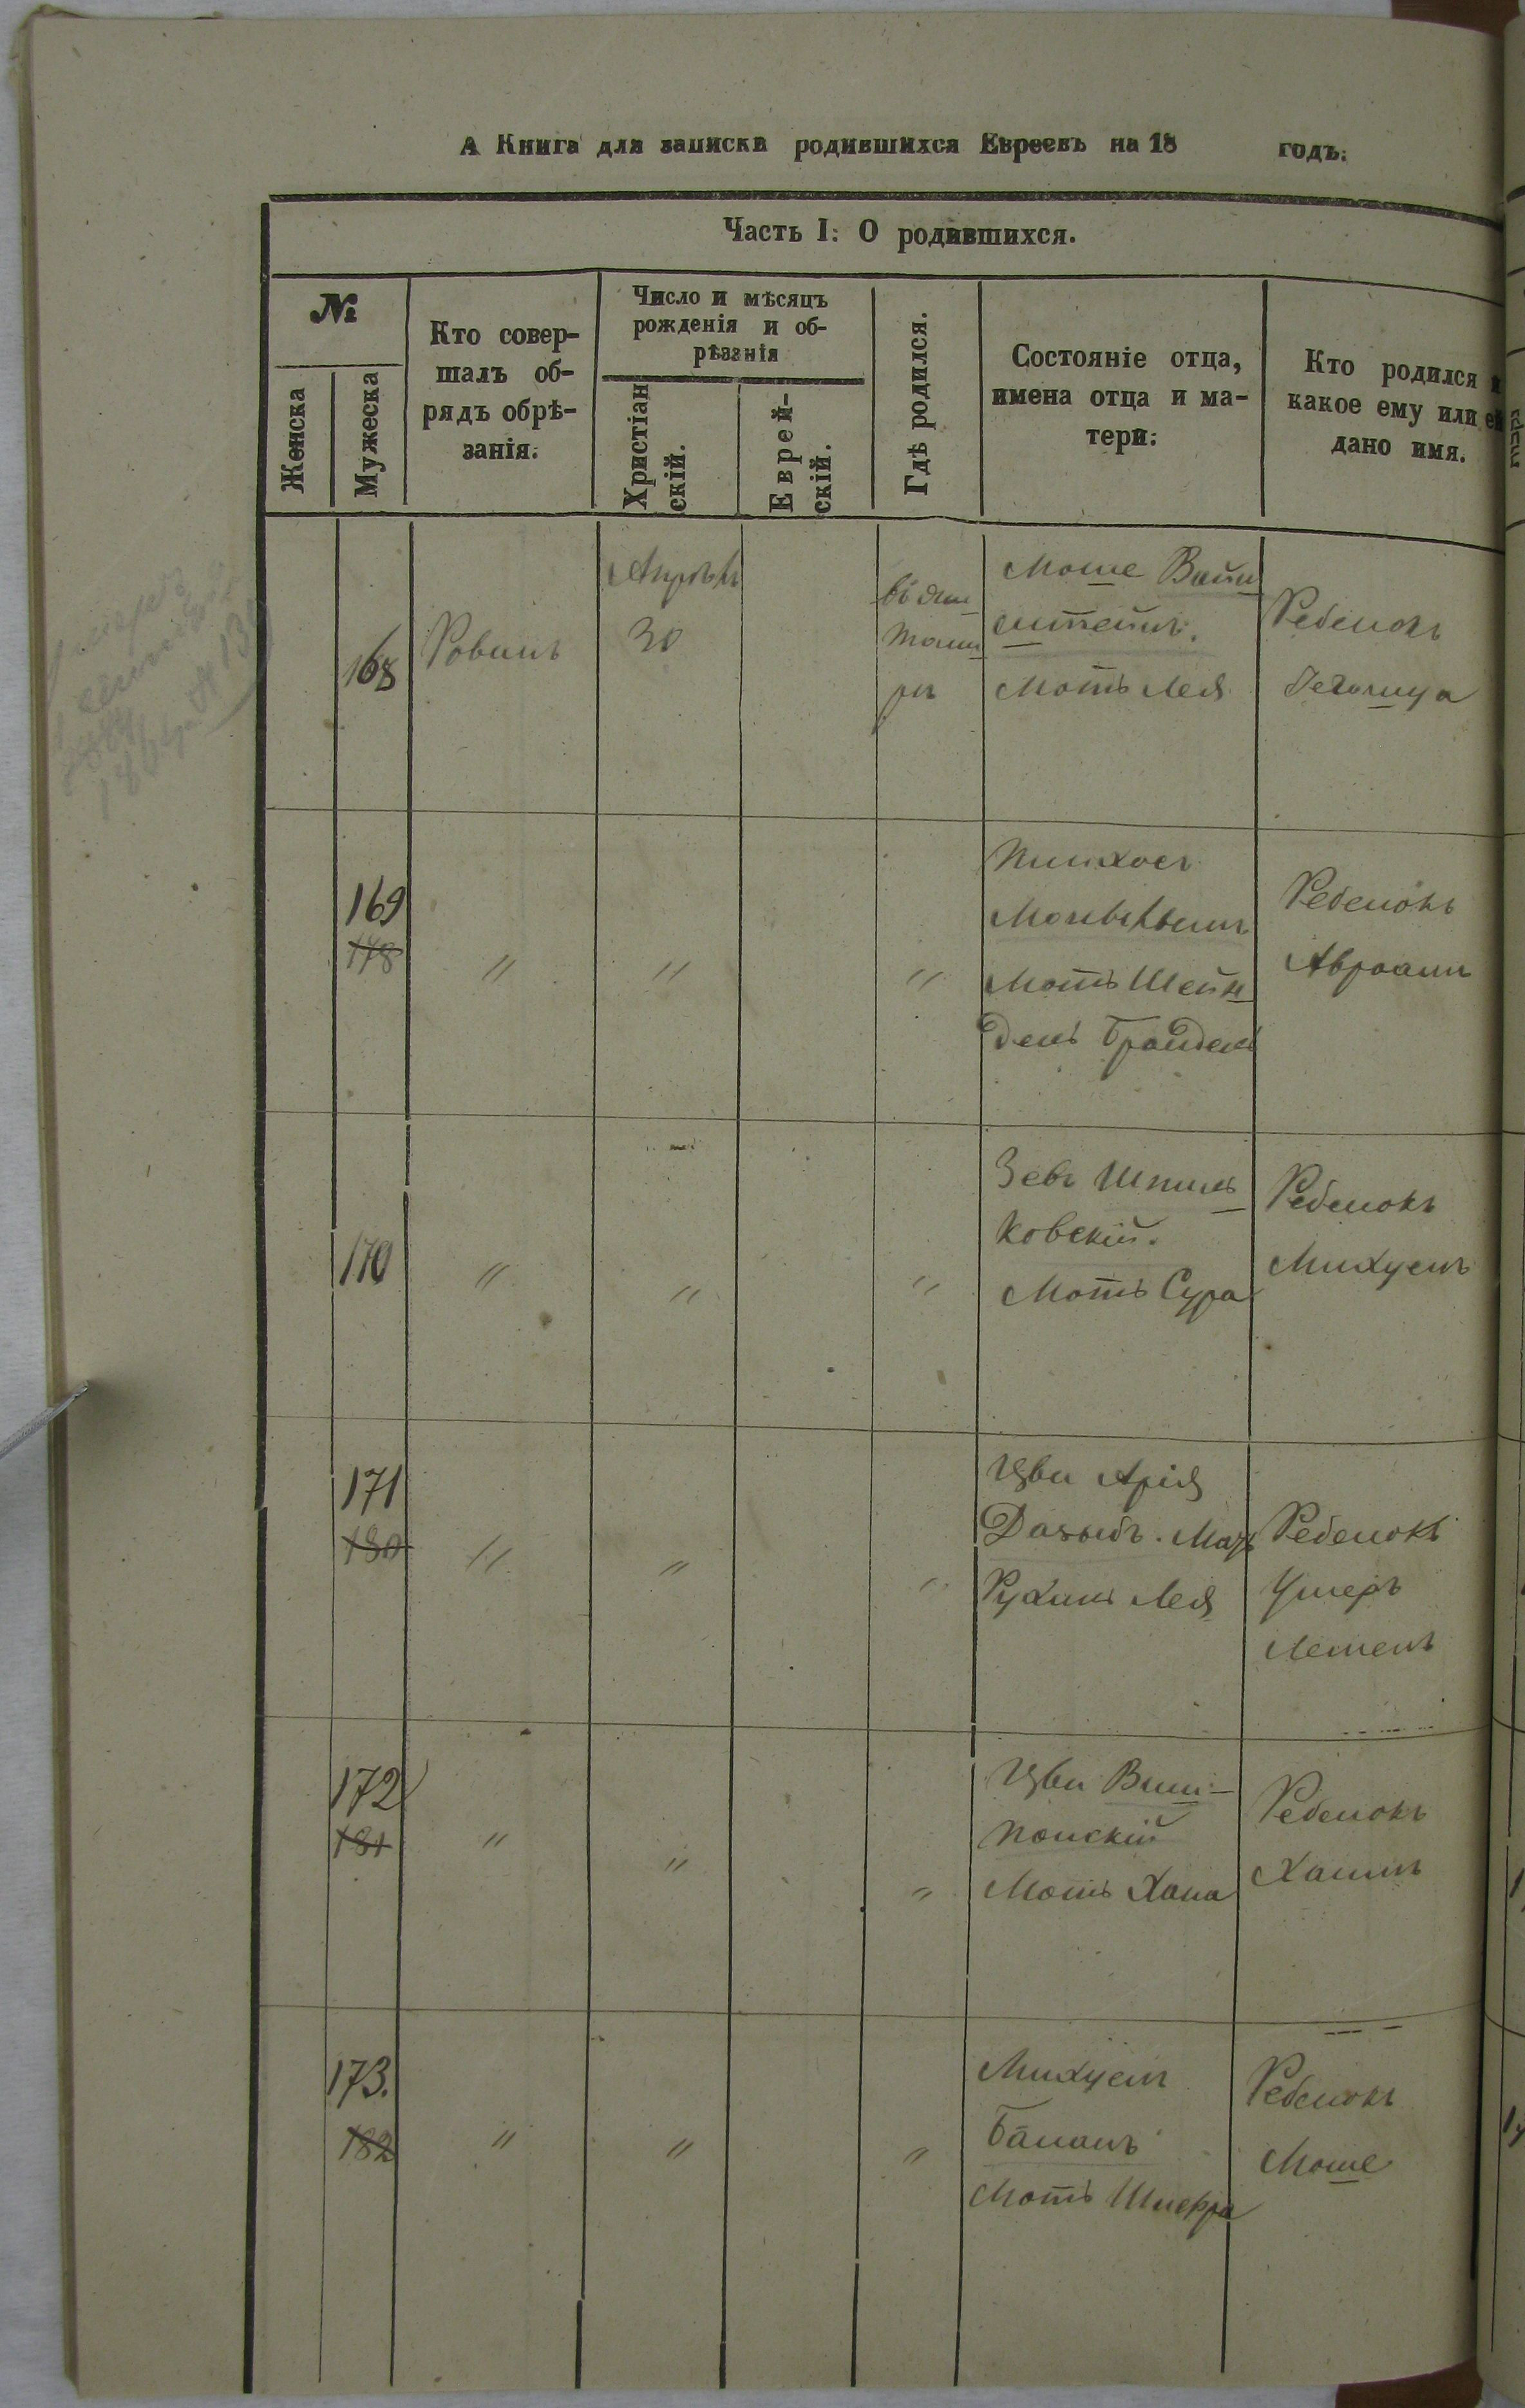 А Книга для записки родившихся Евреевъ на 18 годъ.
Часть I: О родившихся.
№
Женска
Мужеска
Кто совер-
шалъ об-
рядъ обрѣ-
занія.
Число и мѣсяцъ
рожденія и об-
рѣзанія
Христіан
скій.
Еврей-
скій.
Гдѣ родился.
Состояніе отца,
имена отца и ма-
тери.
Кто родился и
какое ему или ей
дано имя.
168
Апрѣль
30
Моше Вайн
штейнъ.
Мать Лея
Ребенокъ
169
178
"
"
"
Пинхосъ
Мать Шейн
дель Брайдель
Ребенокъ
Авроамъ
170
"
"
"
Зевъ Шпиль
ковскій.
Мать Сура
Ребенокъ
Михуель
171
180
"
"
"
Цви Арія
Давыдъ. Мать
Рухль Лея
Ребенокъ
Умеръ
172
181
"
"
"
Цви Вин-
Мать Хана
Ребенокъ
Хаимъ
173.
182
"
"
"
Михуель
Мать Шифра
Ребенокъ
Моше